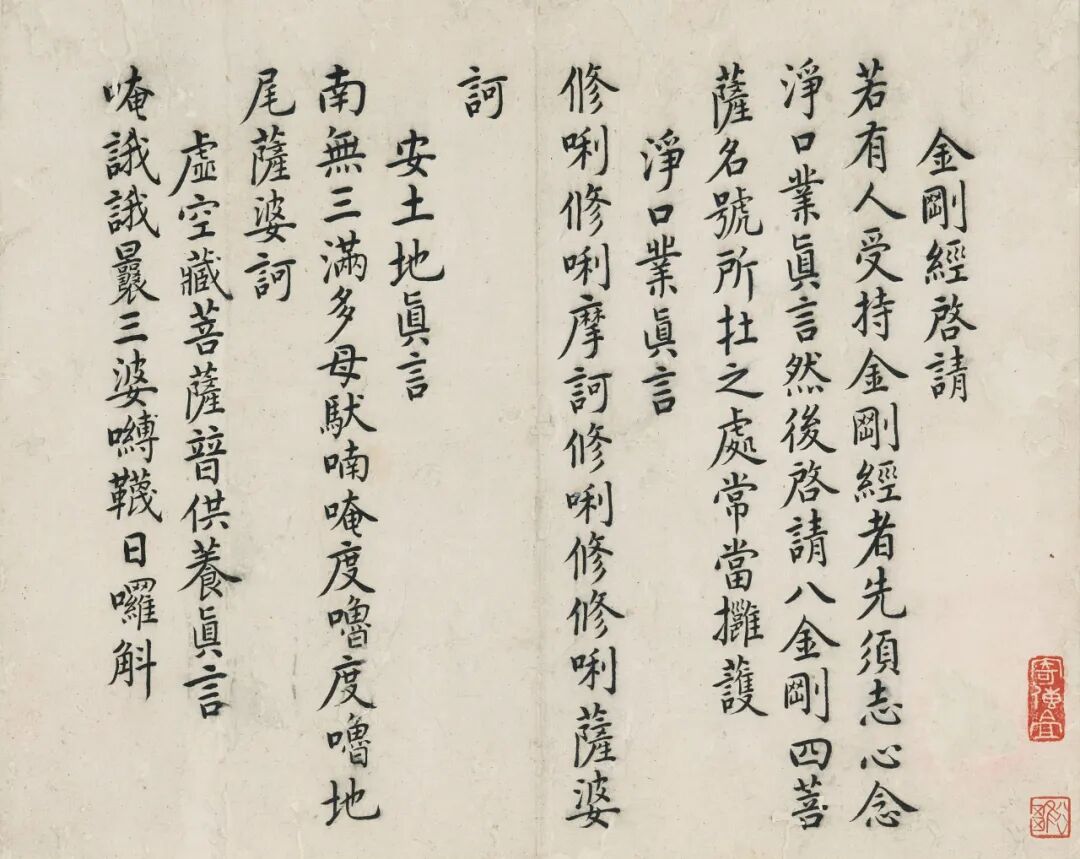 金剛經啓請
若有人受持金剛經者先須志心念
淨口業眞言然後啓請八金剛四菩
薩名號所在之處常當擁護
淨口業眞言
修唎修唎摩訶修唎修修唎薩婆
訶
安土地眞言
南無三滿多母馱喃唵度嚕度嚕地
尾薩婆訶
虛空藏菩薩普供養眞言
唵誐誐曩三婆嚩韈日囉斛